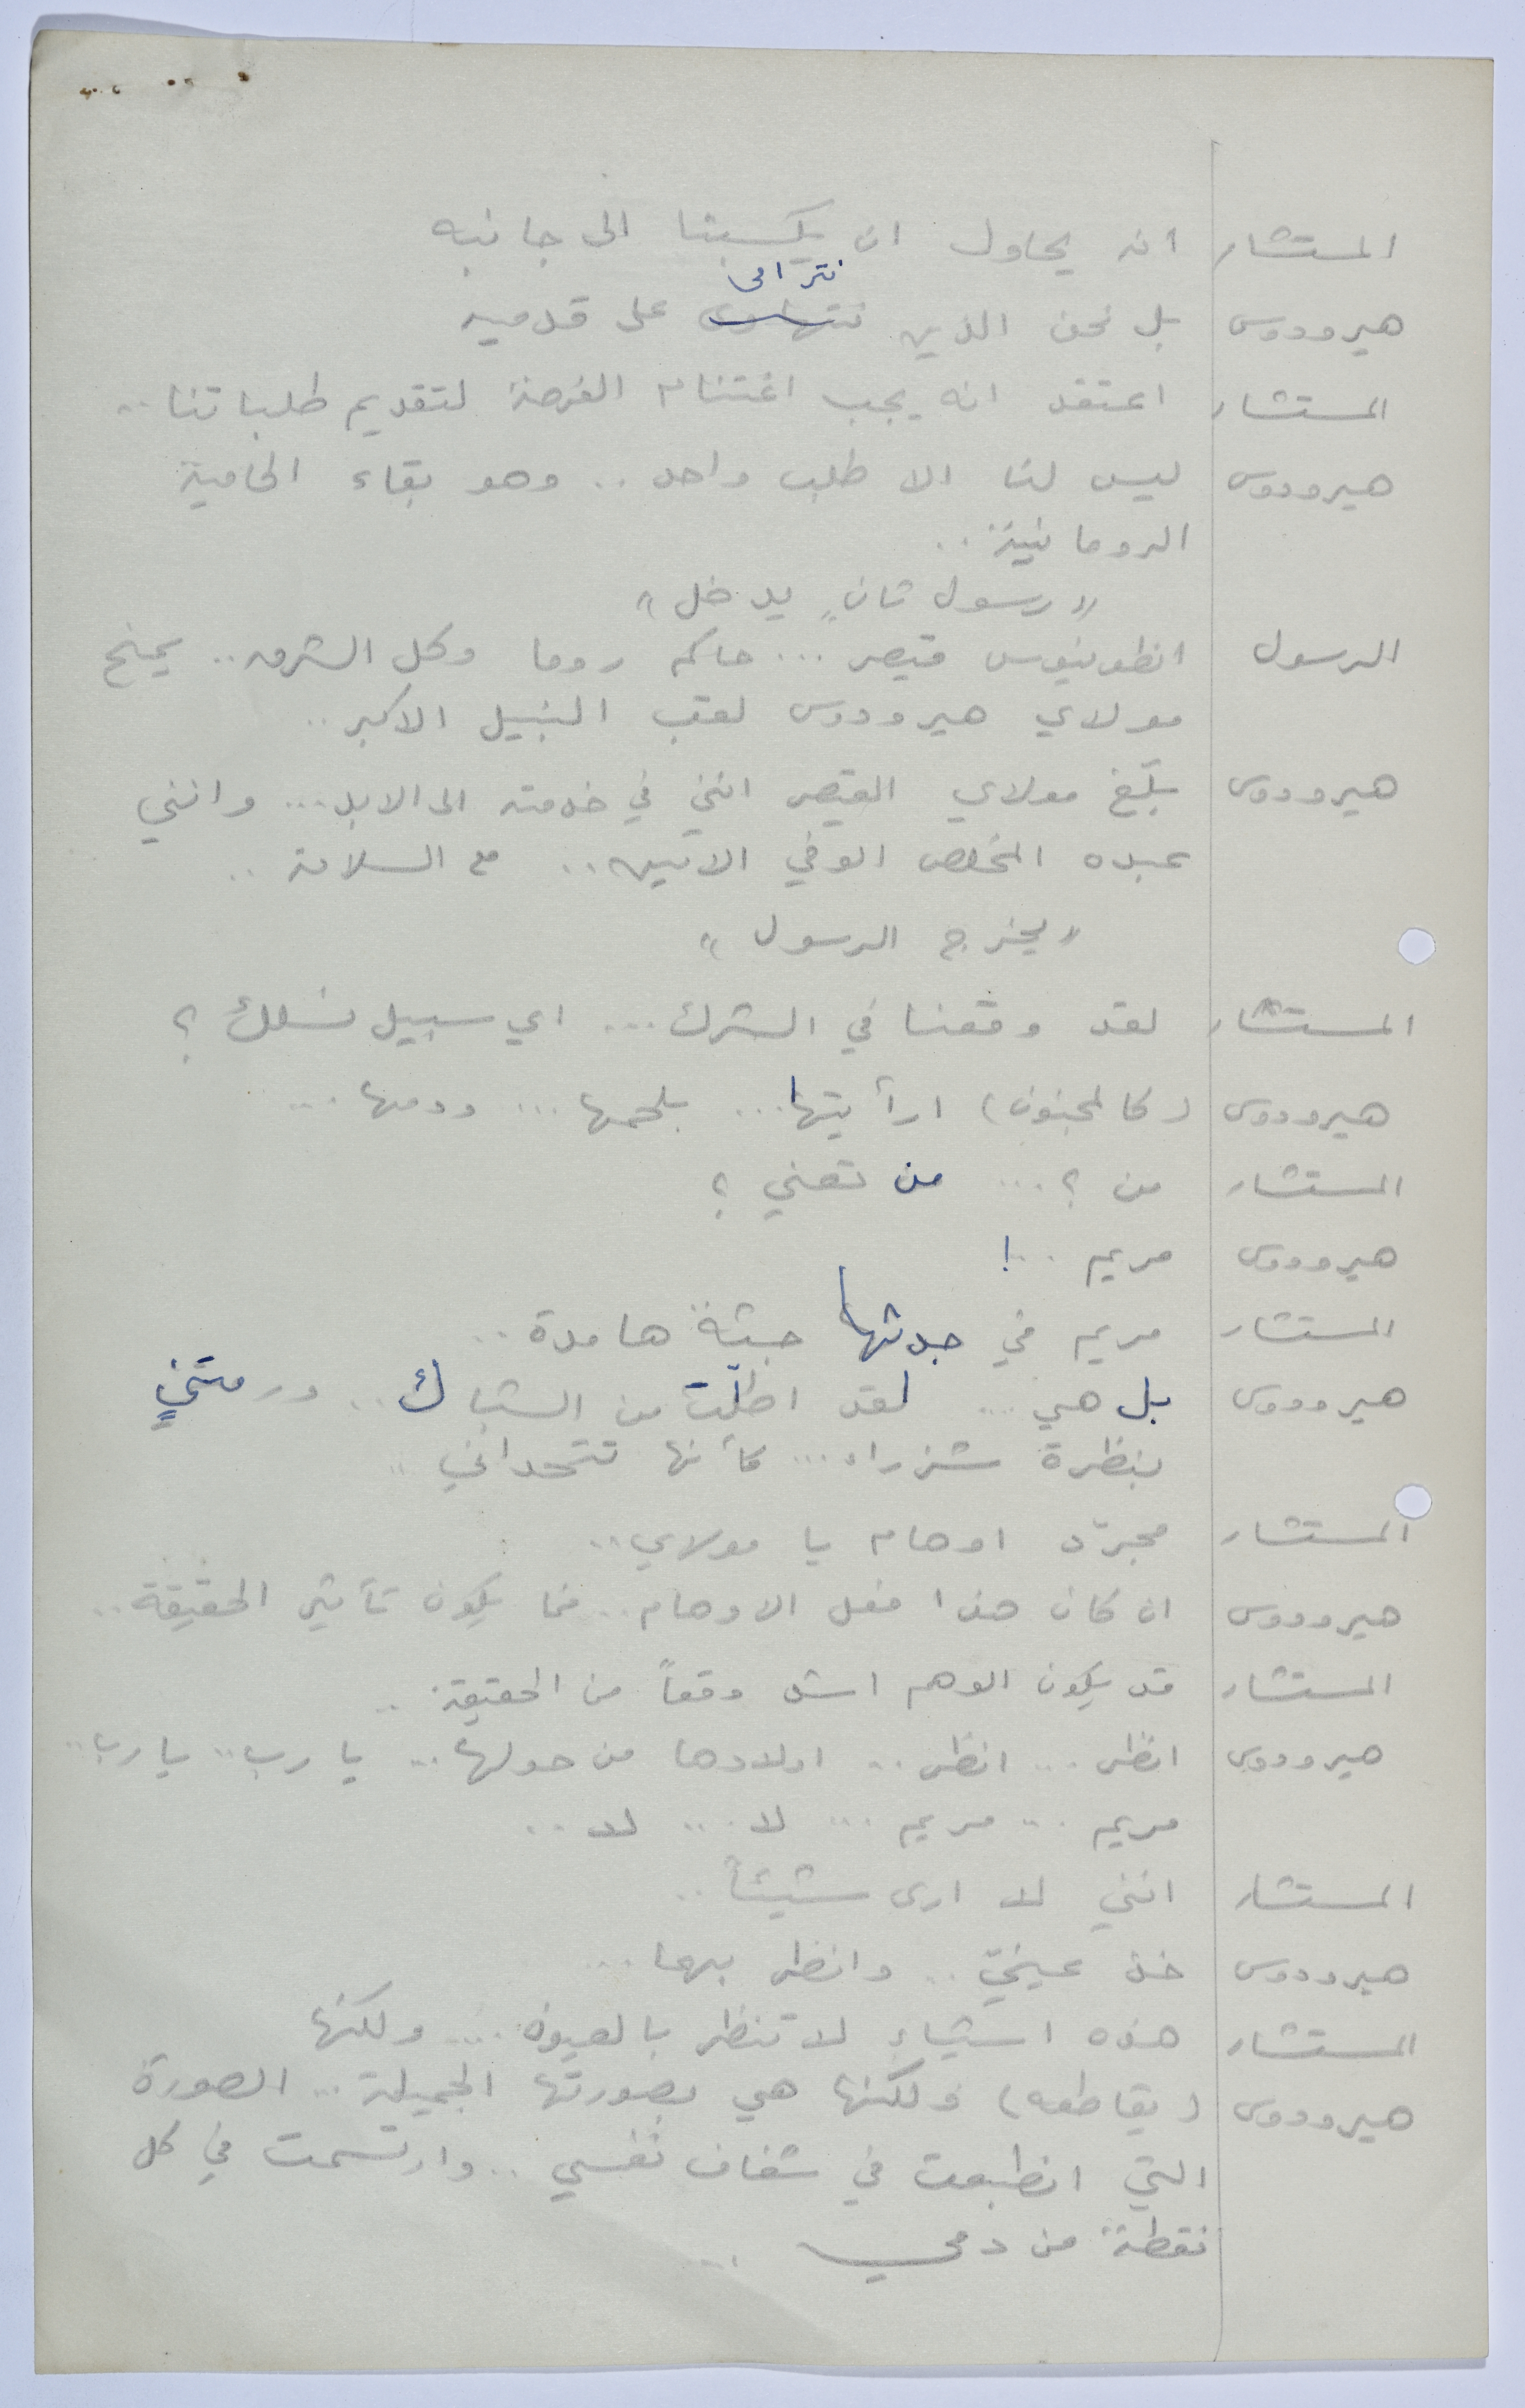 المستشار انه يحاول ان يكسبنا الى جانبه
نترامى
هيرودوس بل نحن الذين نتهاوى على قدميه
المستشار اعتقد انه يجب اغتنام الفرصة لتقديم طلباتنا ..
هيرودوس ليس لنا الا طلب واحد .. وهو بقاء الحامية
الرومانية ..
« رسول ثانٍ يدخل »
الرسول انطونيوس قيصر ... حاكم روما وكل الشرق .. يمنح
مولاي هيرودوس لقب النبيل الاكبر ..
هيرودوس بلّغ مولاي القيصر انني في خدمته الى الابد ... وانني
عبده المخلص الوفي الامين .. مع السلامة ..
« يخرج الرسول »
المستشار لقد وقعنا في الشرك ... اي سبيل نسلك ؟
هيرودوس (كالمجنون) ارأيتها ... بلحمها ... ودمها ...
المستشار من ؟ ... من تعني ؟
هيرودوس مريم .. !
المستشار مريم في جدثها جثة هامدة ..
هيرودوس بل هي ... لقد اطلّت من الشباك .. ورمتني
بنظرة شزراء ... كأنها تتحداني ..
المستشار مجرّد اوهام يا مولاي ..
هيرودوس ان كان هذا فعل الاوهام .. فما يكون تأثير الحقيقة ..
المستشار قد يكون الوهم اشد وقعاً من الحقيقة ..
هيرودوس انظر ... انظر .. اولادها من حولها .. يا رب .. يا رب ..
مريم ... مريم ... لا ... لا ..
المستشار انني لا ارى شيئاً ..
هيرودوس خذ عينيّ .. وانظر بهما ...
المستشار هذه اشياء لا تنظر بالعيون .... ولكنها
هيرودوس (يقاطعه) ولكنها هي بصورتها الجميلة ... الصورة
التي انطبعت في شغاف نفسي .. وارتسمت في كل
نقطة من دمي ...